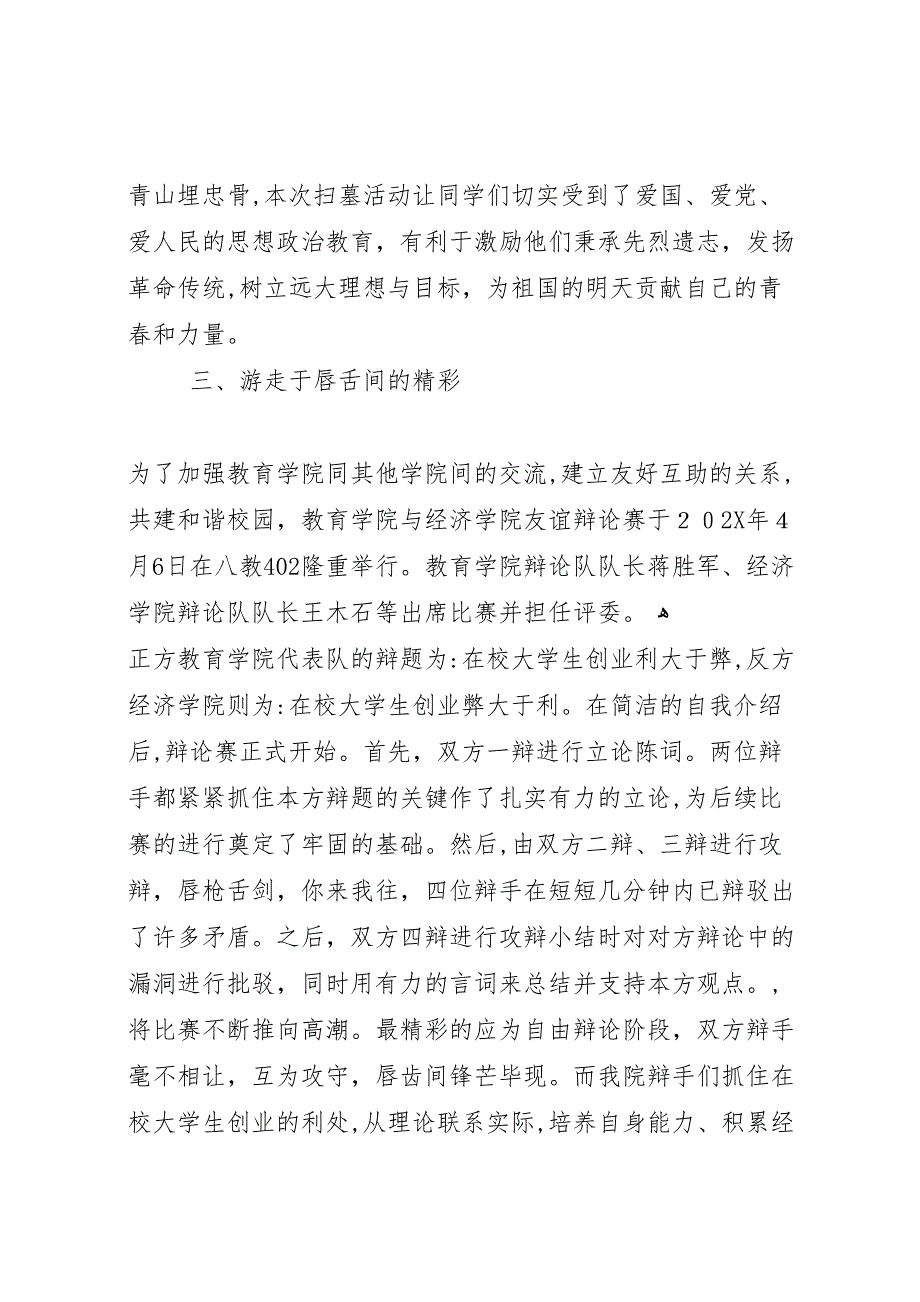 青山埋忠骨,本次扫墓活动让同学们切实受到了爱国、爱党、
爱人民的思想政治教育，有利于激励他们秉承先烈遗志，发扬
革命传统,树立远大理想与目标，为祖国的明天贡献自己的青
春和力量。
三、游走于唇舌间的精彩
为了加强教育学院同其他学院间的交流,建立友好互助的关系,
共建和谐校园，教育学院与经济学院友谊辩论赛于２ ０2X年４
月6日在八教402隆重举行。教育学院辩论队队长蒋胜军、经济
学院辩论队队长王木石等出席比赛并担任评委。 ﻫ
正方教育学院代表队的辩题为:在校大学生创业利大于弊,反方
经济学院则为:在校大学生创业弊大于利。在简洁的自我介绍
后,辩论赛正式开始。首先，双方一辩进行立论陈词。两位辩
手都紧紧抓住本方辩题的关键作了扎实有力的立论,为后续比
赛的进行奠定了牢固的基础。然后,由双方二辩、三辩进行攻
辩，唇枪舌剑，你来我往，四位辩手在短短几分钟内已辩驳出
了许多矛盾。之后，双方四辩进行攻辩小结时对对方辩论中的
漏洞进行批驳，同时用有力的言词来总结并支持本方观点。,
将比赛不断推向高潮。最精彩的应为自由辩论阶段，双方辩手
毫不相让，互为攻守，唇齿间锋芒毕现。而我院辩手们抓住在
校大学生创业的利处,从理论联系实际,培养自身能力、积累经